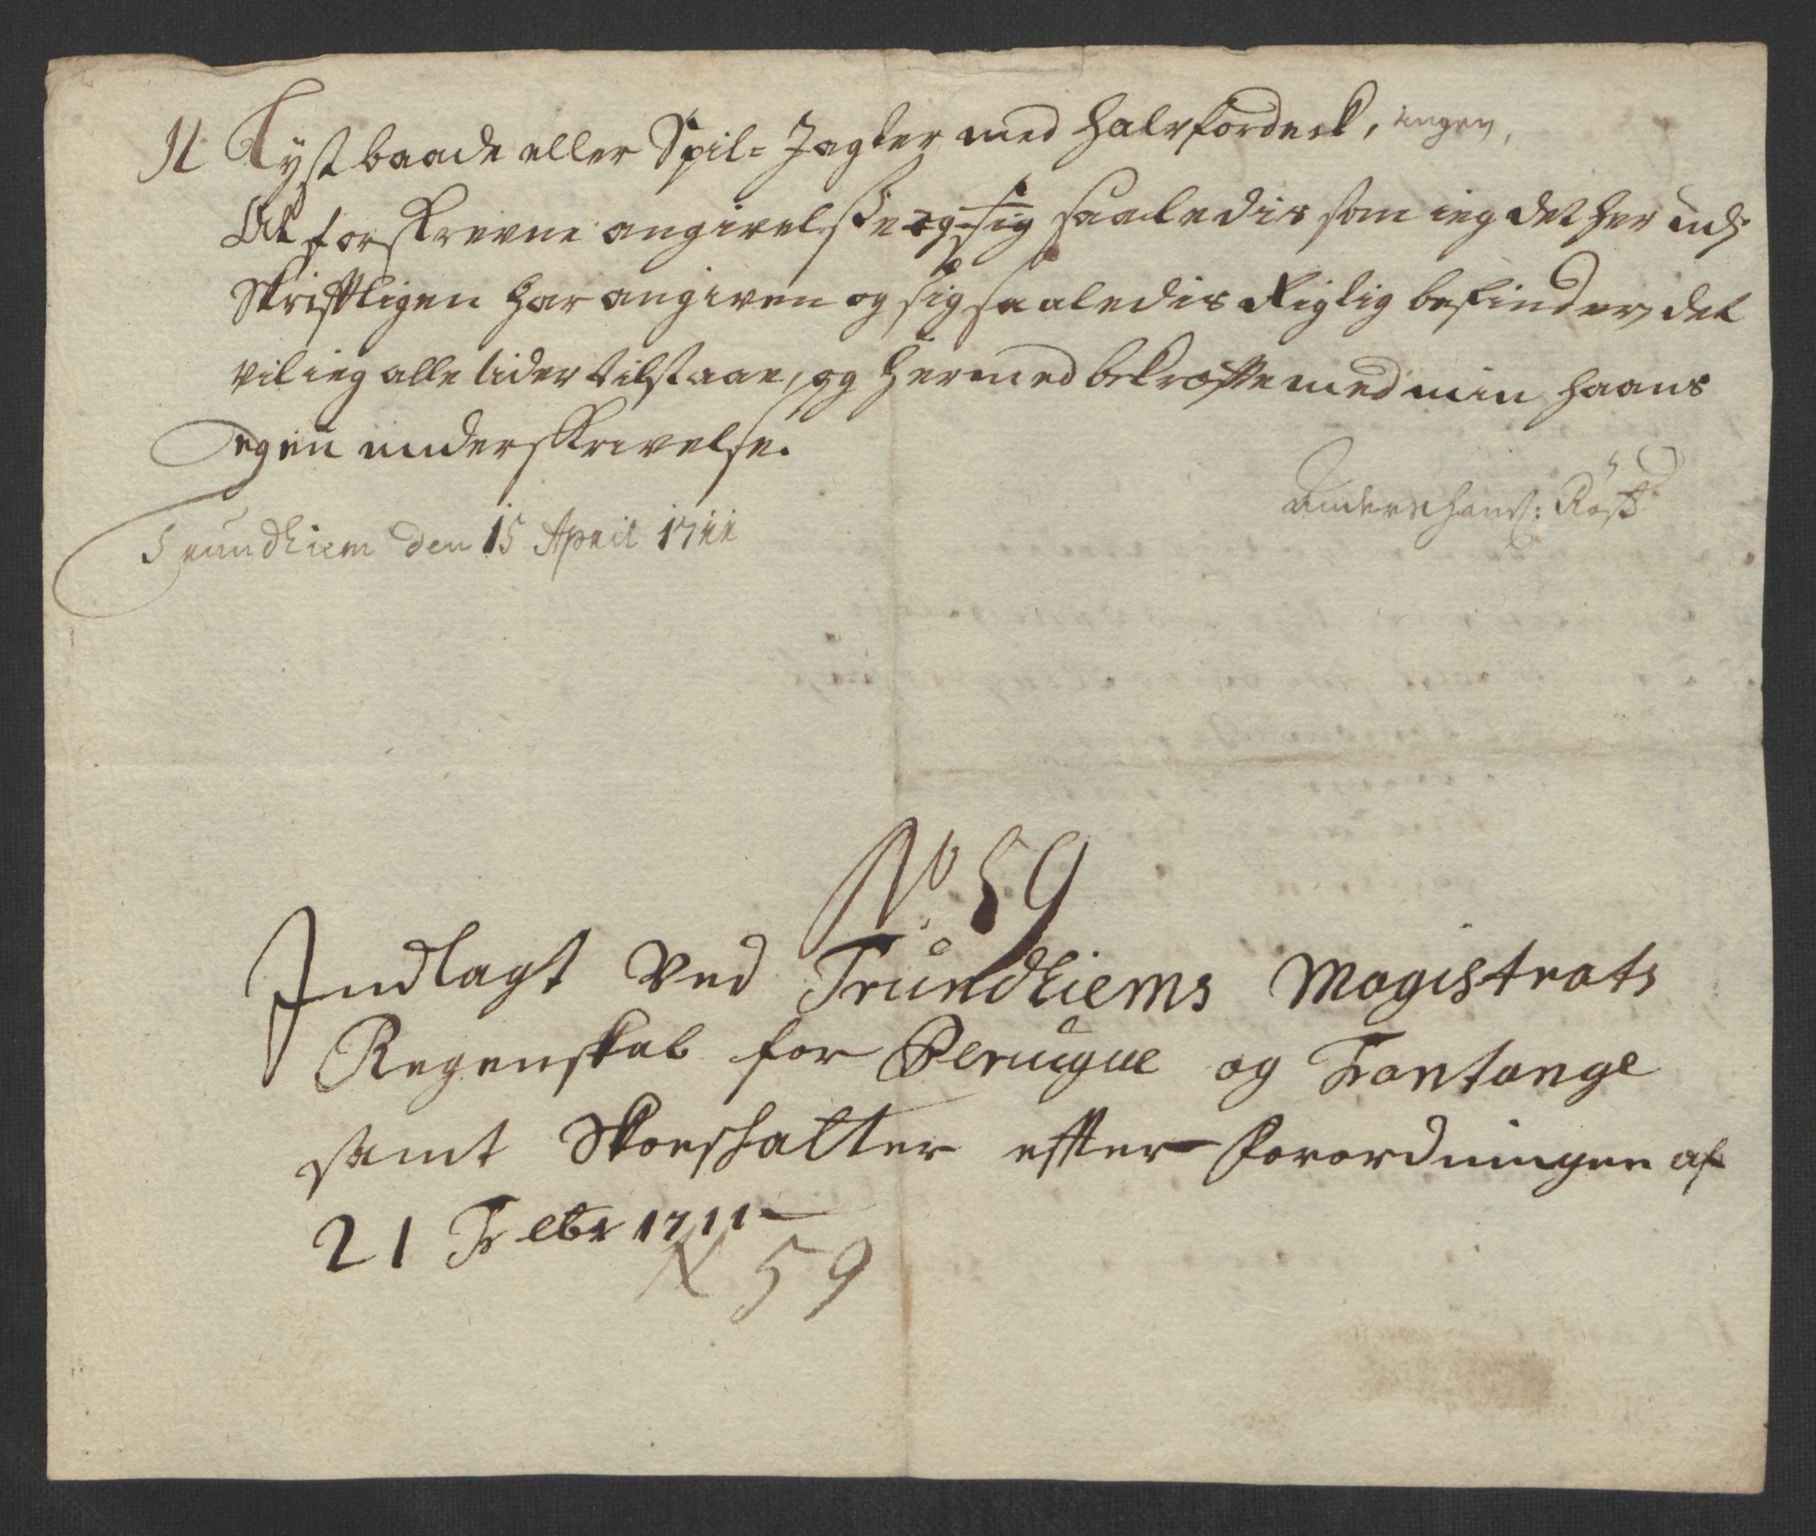 11 Lystbaade eller Spil-Jagter med halvfordeck, ingen,
At forskrevne angivelse og sig saaledis som ieg det her udj
Skriftligen har angiven og sig saaledis Rigtig befinder, det
vil ieg alle tider tilstaae, og hermed bekræfte med min haans
egen underskrivelse.
Trundhiem den 15 April 1711
Anders Hanß: Röst
No 59
Indlagt ved Trundhiems Magistrats
Regenskab for Peruque og Fontange
samt Skoeshatter efter Forordningen af
21 Febr 1711
N 59